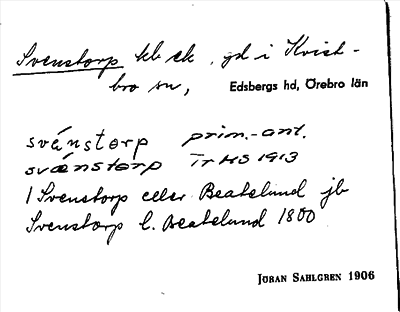 Svenstorp kb ek, gd i Kvist-
bro sn, Edsbergs hd, Örebro län
svánstorp prim.-ant.
svænstorp TrHS 1913
1 Svenstorp eller Beatelund jb
Svenstorp l. Beatelund 1800
JÖRAN SAHLGREN 1906